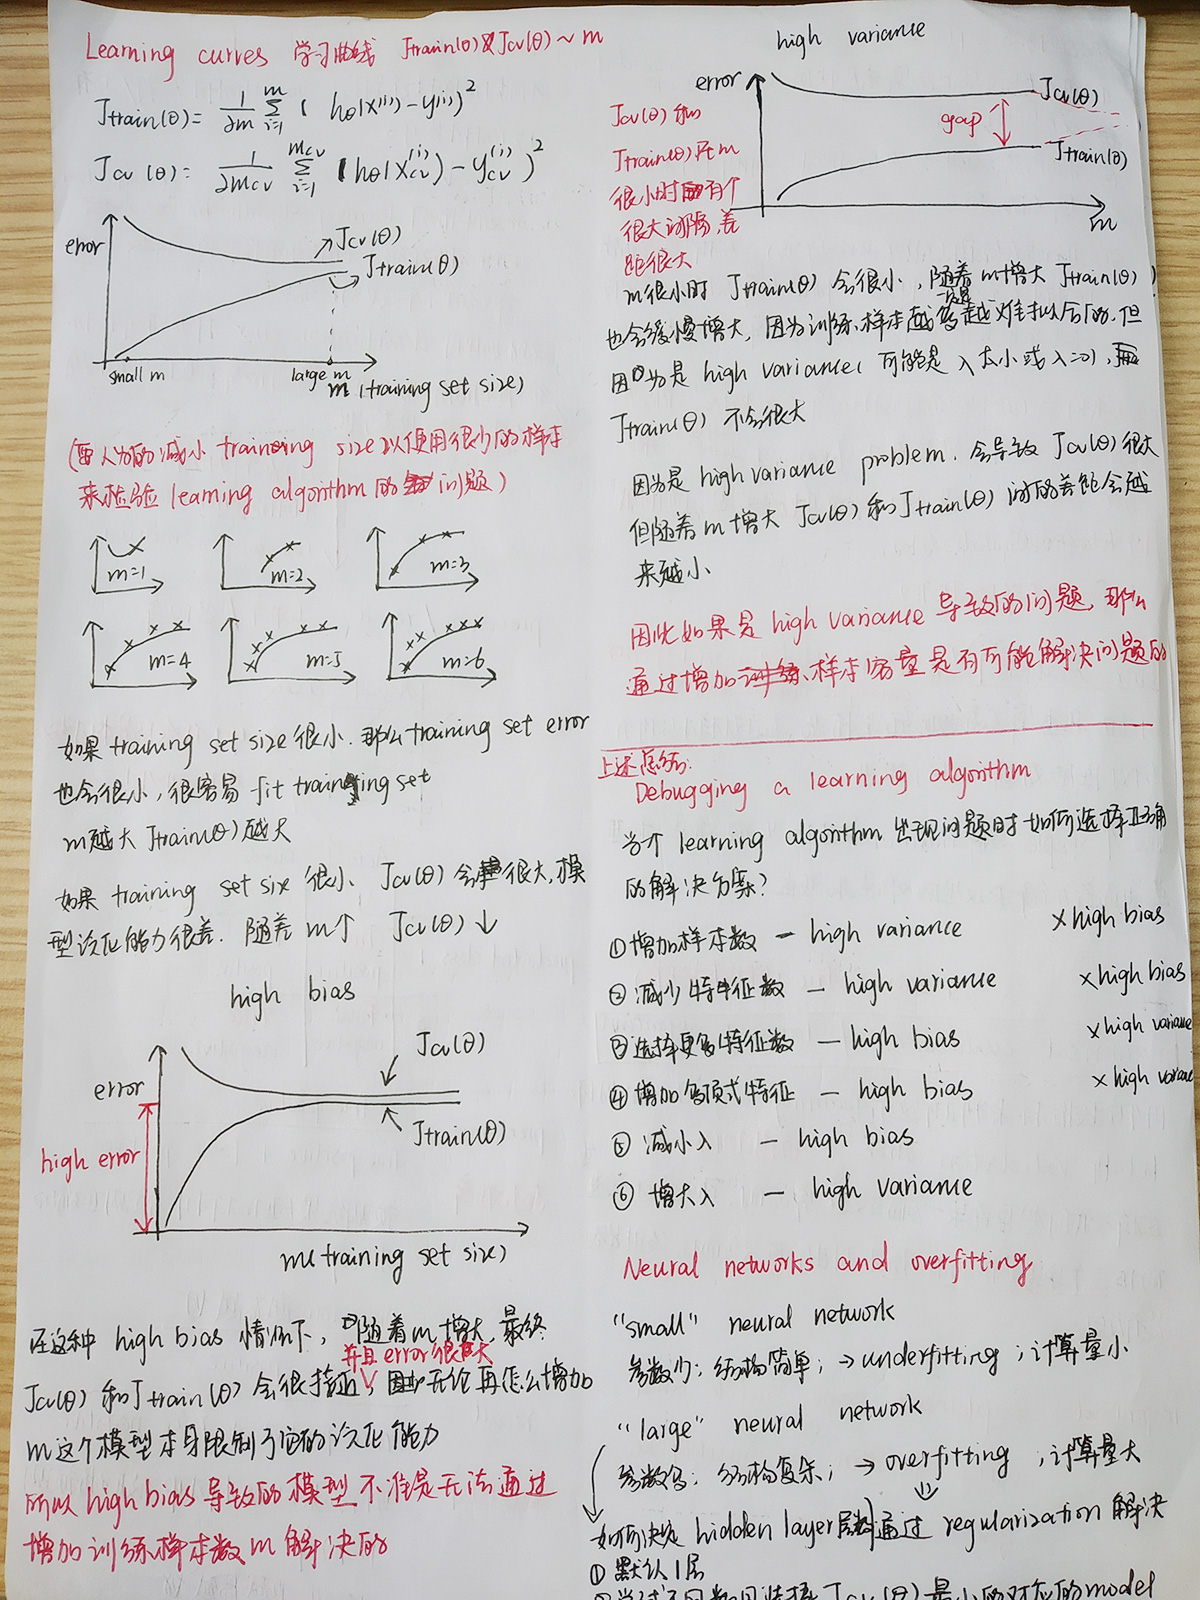 Learning curves 学习曲线 Jtrain(θ)及Jcv(θ) ~ m
Jtrain(θ) = 1/2m Σ i=1 m ( hθ(x(i)) - y(i))²
Jcv (θ) = 1/2mcv Σ i=1 mcv (hθ(xcv(i)) - ycv(i))²
error
Jcv(θ)
Jtrain(θ)
small m
large m
m (training set size)
来检验 learning algorithm 的 问题)
m=1
m=2
m=3
m=4
m=5
m=6
如果 training set size 很小. 那么 training set error
也会很小, 很容易 fit training set
m越大 Jtrain(θ) 越大
如果 training set size 很小 Jcv(θ) 会 很大,模
型泛化能力很差. 随着 m↑ Jcv(θ) ↓
high bias
error
Jcv(θ)
Jtrain(θ)
high error
m( training set size)
在这种 high bias 情况下, 随着m增大, 最终
并且error很大
Jcv(θ) 和 Jtrain(θ) 会很接近, 无论再怎么增加
m 这个模型本身限制了它的泛化能力
所以 high bias 导致的模型不准是无法通过
增加训练样本数 m 解决的
high variance
error
Jcv(θ)
gap
Jtrain(θ)
m
Jcv(θ) 和
Jtrain(θ) 在m
很小时 有个
很大间隔,差
距很大
m很小时 Jtrain(θ) 会很小, 随着m增大 Jtrain(θ)
也会缓慢增大, 因为训练样本越多越难拟合的. 但
因为是 high variance( 可能是 λ太小或λ=0),
Jtrain(θ) 不会很大
因为是 high variance problem. 会导致 Jcv(θ) 很大
但随着 m 增大 Jcv(θ) 和 Jtrain(θ) 间的差距会越
来越小
因此如果是 high variance 导致的问题, 那么
通过增加 样本容量是有可能解决问题的
上述总结:
Debugging a learning algorithm
当个 learning algorithm 出现问题时如何选择正确
的解决方案?
①增加样本数 — high variance × high bias
②减少特征数 — high variance × high bias
③选择更多特征数 — high bias × high variance
④增加多项式特征 — high bias × high variance
⑤ 减小λ — high bias
⑥ 增大λ — high variance
Neural networks and overfitting
"small" neural network
参数少; 结构简单; → underfitting ; 计算量小
"large" neural network
参数多; 结构复杂; → overfitting ; 计算量大
如何决定 hidden layer 层数 通过 regularization 解决
① 默认1层
Jcv(θ) 最小的对应的model